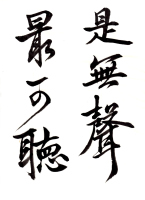 是無聲
最可聽